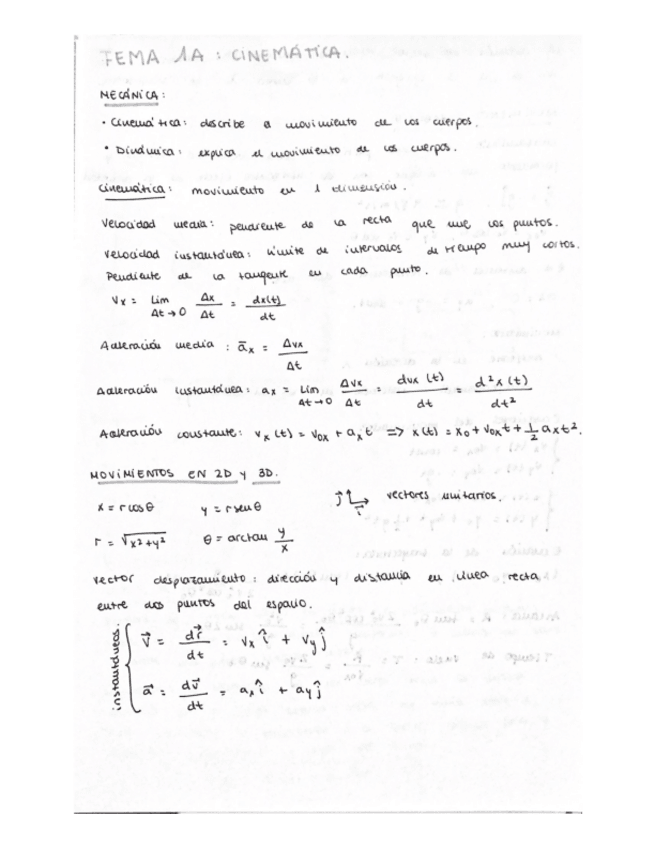 TEMA 1A : CINEMÁTICA.
MECÁNICA:
· Cinemática: describe el movimiento de los cuerpos.
· Dinámica: explica el movimiento de los cuerpos.
Cinemática: movimiento en 1 dimensión.
Velocidad media: pendiente de la recta que une los puntos.
Velocidad instantánea: límite de intervalos de tiempo muy cortos.
Pendiente de la tangente en cada punto.
Vx = Lim Δt→0 Δx/Δt = dx(t)/dt
Aceleración media : āx = Δvx/Δt
Aceleración instantánea: ax = Lim Δt→0 Δvx/Δt = dvx(t)/dt = d²x(t)/dt²
Aceleración constante: vx(t) = v0x + axt => x(t) = x0 + v0xt + 1/2 axt².
MOVIMIENTOS EN 2D y 3D.
x = r cosθ y = r senθ j⃗ i⃗ vectores unitarios.
r = √x²+y² θ = arctan y/x
Vector desplazamiento : dirección y distancia en línea recta
entre dos puntos del espacio.
instantáneos
v⃗ = dr⃗/dt = vx î + vy ĵ
a⃗ = dv⃗/dt = ax î + ay ĵ